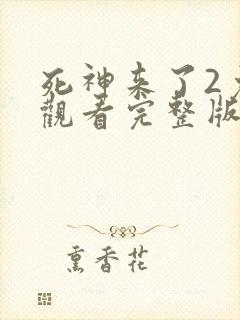 死神来了2
觀看完整版
熏香花